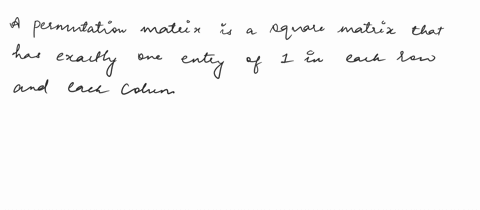 A permutation matrix is a square matrix that
has exactly one entry of 1 in each row
and each Colum